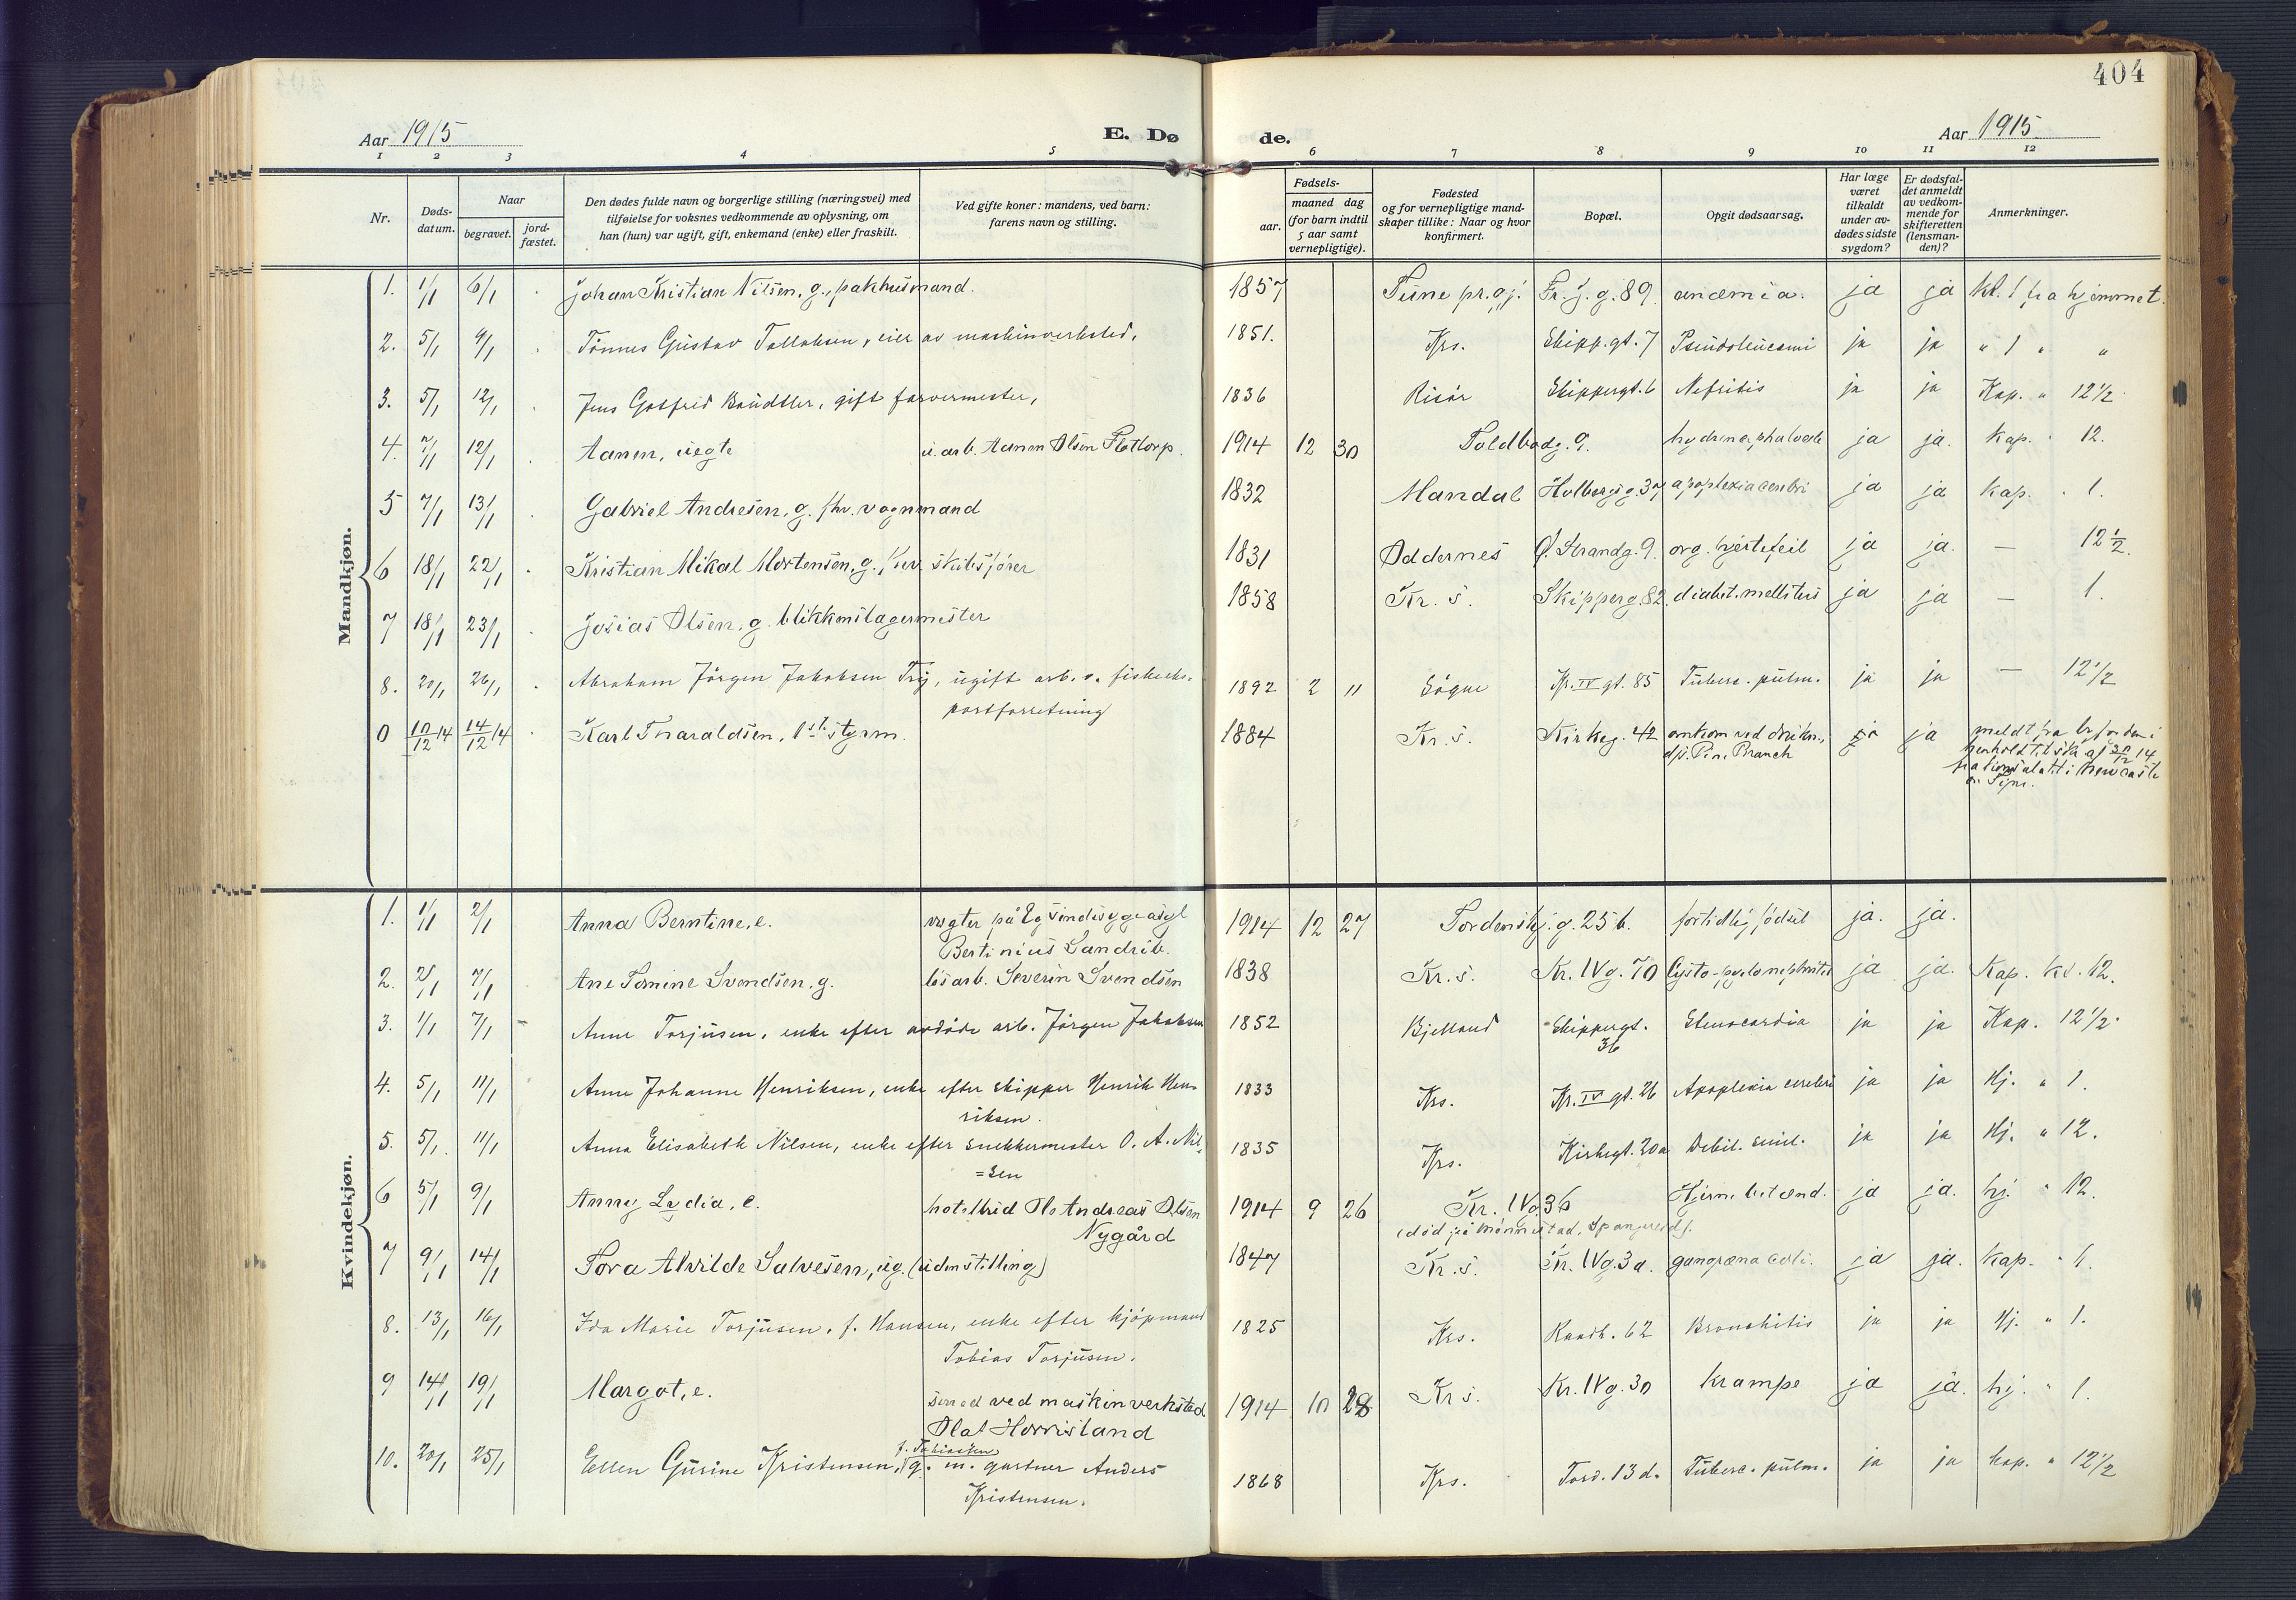 404
Aar 1915
E. Dø de.
Aar 1915.
1 2 3 4 5 6 7 8 9 10 11 12
Nr.
Døds-
datum.
Naar
begravet.
jord-
fæstet.
Den dødes fulde navn og borgerlige stilling (næringsvei) med
tilføielse for voksnes vedkommende av oplysning, om
han (hun) var ugift, gift, enkemand (enke) eller fraskilt.
Ved gifte koner: mandens, ved barn:
farens navn og stilling.
Fødsels-
aar.
maaned dag
(for barn indtil
5 aar samt
vernepligtige).
Fødested
og for vernepligtige mand-
skaper tillike: Naar og hvor
konfirmert.
Bopæl.
Opgit dødsaarsag.
Har læge
været
tilkaldt
under av-
dødes sidste
sygdom?
Er dødsfal-
det anmeldt
av vedkom-
mende for
skifteretten
(lensman-
den)?
Anmerkninger.
Mandkjøn.
1. 1/1 6/1 Johan Kristian Nilsen, g., pakhusmand. 1857 Tune pr. gj. Fr. J. g. 89. anæmia. ja ja kl. 1 fra hjemmet.
2. 5/1 9/1 Tönnes Gustav Tallaksen, eier av maskinverksted, 1851. Krs. Skipp. gt. 7 Pseudoleucemi ja ja " 1 " "
3. 5/1 12/1 Jens Gotfred Baudtler, gift farvermester, 1836 Risör Skippergt. 6 Nefritis ja ja Kap. " 12 1/2
4. 7/1 12/1 Aanen, uegte u. arb. Aanen Olsen Flottorp. 1914 12 30 Toldbodg. 9. ja ja. Kap. " 12.
5 7/1 13/1 Gabriel Andresen, g. fhv. vognmand 1832 Mandal Holbergsg. 37 apoplexia cerebri ja ja Kap. " 1.
6 18/1 22/1 Kristian Mikal Mortensen, g. fhv. skibsfører 1831 Oddernes Ø. Strandg. 9. org. hjertefeil ja ja. — 12 1/2.
7 18/1 23/1 Josias Olsen, g. blikkenslagermester 1858 Kr. s. Skipperg. 82. diabet. mellitus ja ja — 1.
8. 20/1 26/1 Abraham Jörgen Jakobsen Try, ugift arb. v. fiskeeks-
portforretning 1892 2 11 Sögne Kr. IV gt. 85 Tuberc. pulm. ja ja — 12 1/2
0 10/12 14 14/12 14 Karl Tharaldsen, 1ste styrm. 1884 Kr. s. Kirkeg. 42 omkom ved drukn., ja meldt fra
d/s. Pine Branch henhold til skr. af 30/12 14
fra konsulatet i Newcastle
on Tyne.
Kvindekjøn.
1. 1/1 2/1 Anna Berntine, e. vogter på Eg sindssygeasyl 1914 12 27 Tordenskj. g. 25 b. fortidlig fødsel ja. ja.
Bertinius Sandrib.
2. 2/1 7/1 Ane Tomine Svendsen, g. løsarb. Severin Svendsen 1838 Kr. s. Kr. IV g. 70 Cysto-pyelonephritis ja ja. Kap. kl. 12.
3. 1/1 7/1 Anne Torjusen, enke efter avdöde arb. Jörgen Jakobsen 1852 Bjelland Skippergt. Stenocardia ja ja Kap. 12 1/2.
36
4. 5/1 11/1 Anne Johanne Henriksen, enke efter skipper Henrik Hen- 1833 Krs. Kr. IV gt. 26 Apoplexia cerebri ja ja Hj. " 1.
riksen.
5. 5/1 11/1 Anna Elisabeth Nilsen, enke efter snekkermester O. A. Nil- 1835 Krs. Kirkegt. 20a Debil. senil. ja ja Hj. " 12.
=sen
6 5/1 9/1 Anny Lydia, e. hotelbud Ole Andreas Olsen 1914 9 26 Kr. IV g. 36 Hjernebetænd. ja ja. hj. " 12.
Nygård (död på Mönnestad, Spangereid).
7 9/1 14/1 Tora Alvilde Salvesen, ug. (uden stilling) 1847 Kr. s. Kr. IV g. 3a. gangræna coli. ja ja. Kap. " 1.
8. 13/1 16/1 Ida Marie Torjusen, f. Hansen, enke efter kjöpmand 1825 Krs. Raadh. 62 Bronchitis ja ja Hj. " 1.
Tobias Torjusen.
9 14/1 19/1 Margot, e. smed ved maskinverksted 1914 10 28 Kr s. Kr. IV g. 30 Krampe ja ja. hj. " 1.
Olaf Horrisland
10. 20/1 25/1 Ellen Gurine Kristensen, f. Tobiassen, g. m. gartner Anders 1868 Krs. Tord. 13 d. Tuberc. pulm. ja ja kap. " 12 1/2
Kristensen.